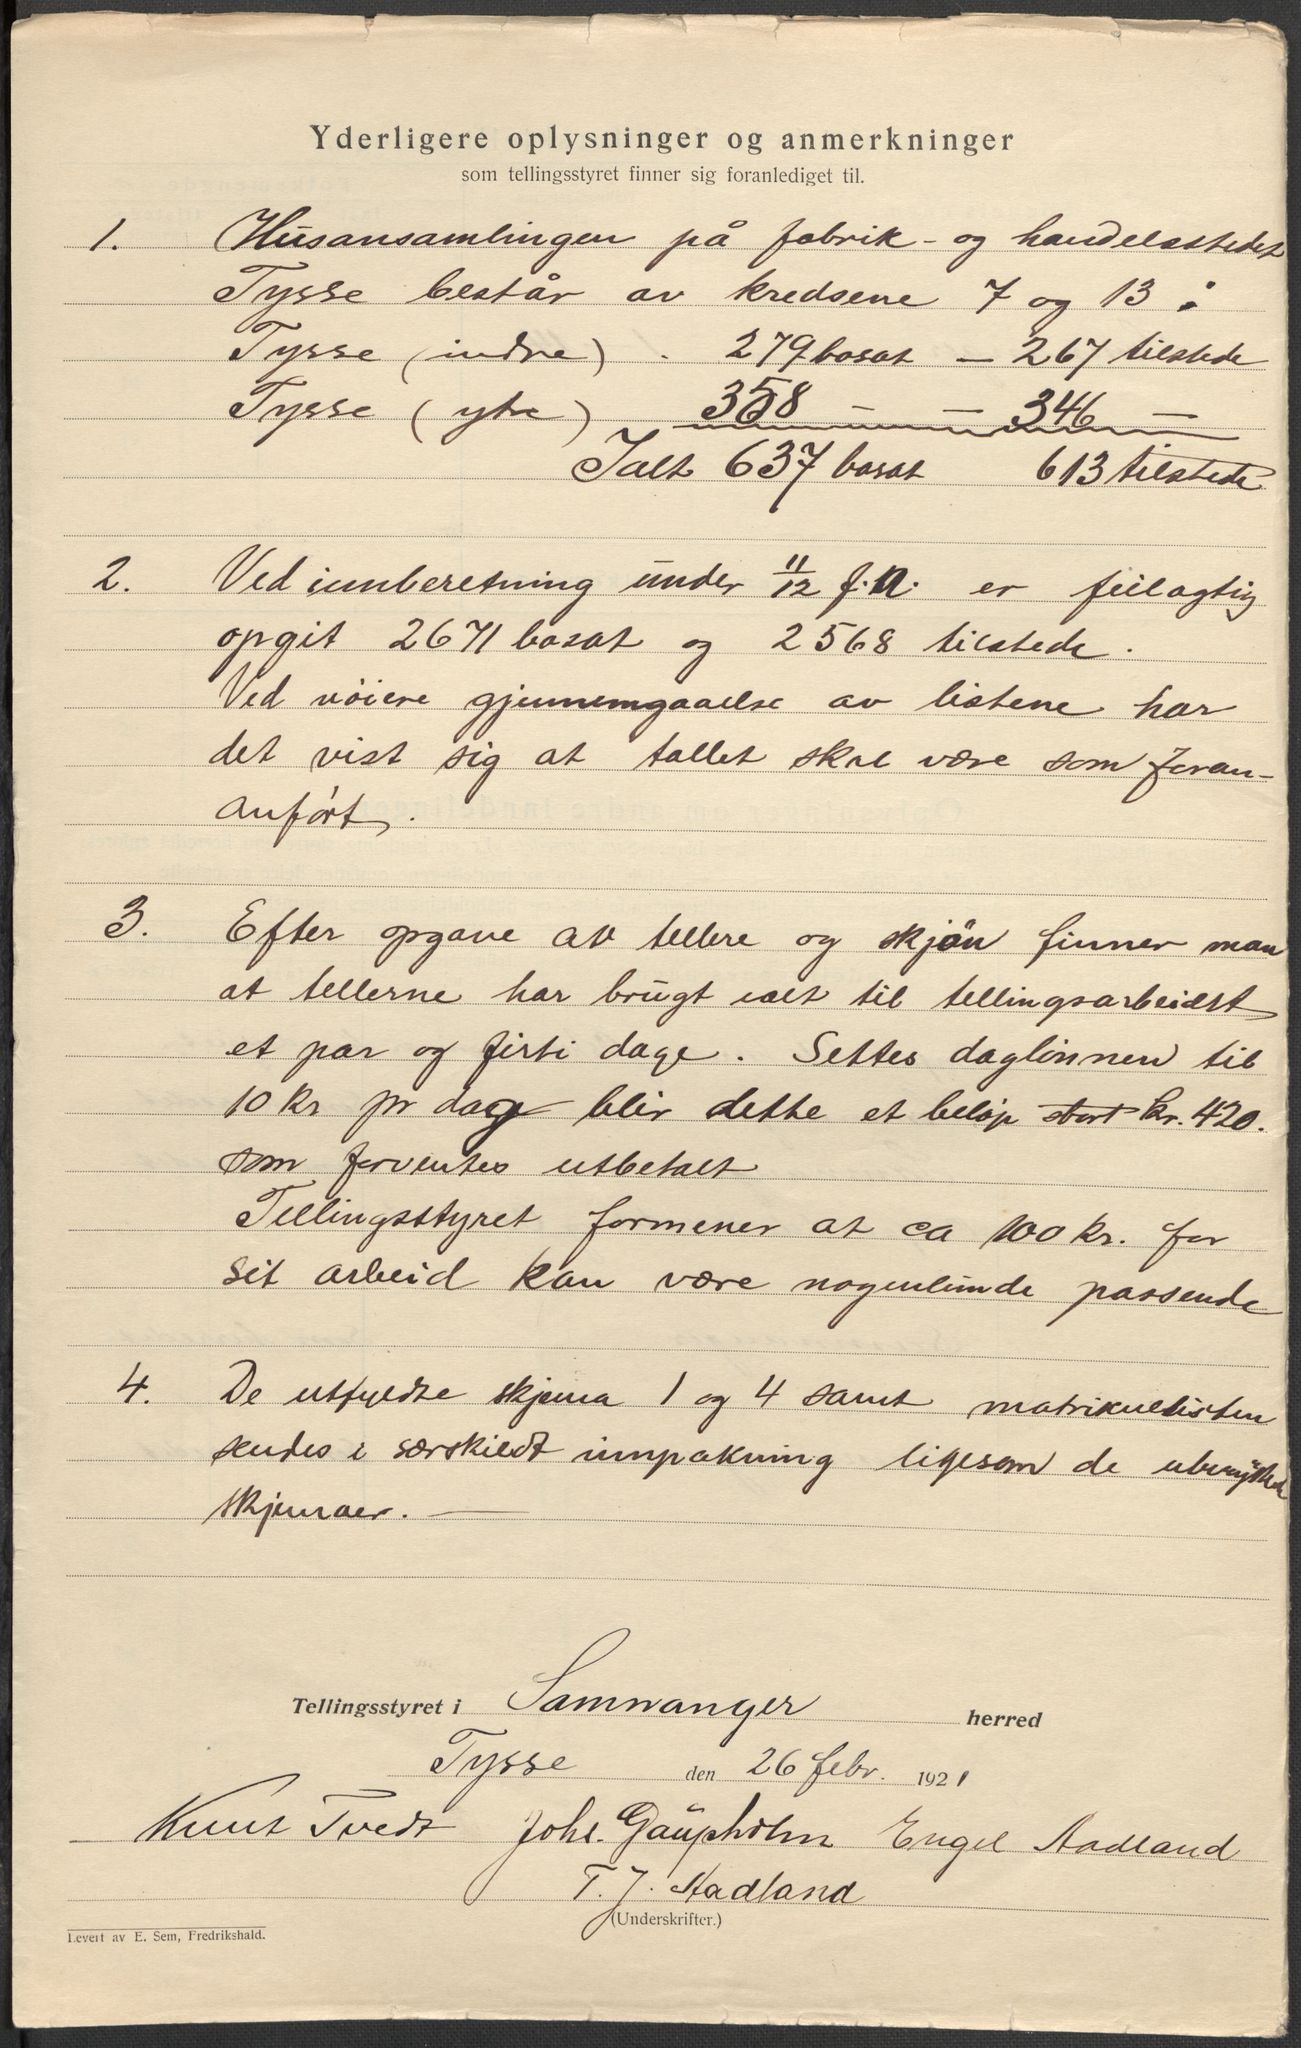 Yderligere oplysninger og anmerkninger
som tellingsstyret finner sig foranlediget til.
1. Husansamlingen på fabrik- og handelsstedet
Tysse består av kredsene 7 og 13:
Tysse (indre) . 279 bosat — 267 tilstede
Tysse (ytre) 358 — — 346 —
Ialt 637 bosat 613 tilstede
2. Ved innberetning under 11/12 f.a. er feilagtig
opgit 2671 bosat og 2568 tilstede.
Ved nöiere gjennemgaaelse av listene har
det vist sig at tallet skal være som foran-
anført.
3. Efter opgave av tellere og skjön finner man
at tellerne har brugt ialt til tellingsarbeidet
et par og firti dage. Settes daglönnen til
10 kr pr dag blir dette et beløp stort kr. 420.
som forventes utbetalt
Tellingsstyret formener at ca 100 kr. for
sit arbeid kan være nogenlunde passende
4. De utfyldte skjema 1 og 4 samt matrikullisten
sendes i særskildt innpakning ligesom de ubenyttede
skjemaer. —
Tellingsstyret i Samnanger herred
Tysse den 26 febr. 1921
Knut Tvedt Johs. Gäupholm Engel Aadland
T. J. Aadland
(Underskrifter.)
Levert av E. Sem, Fredrikshald.